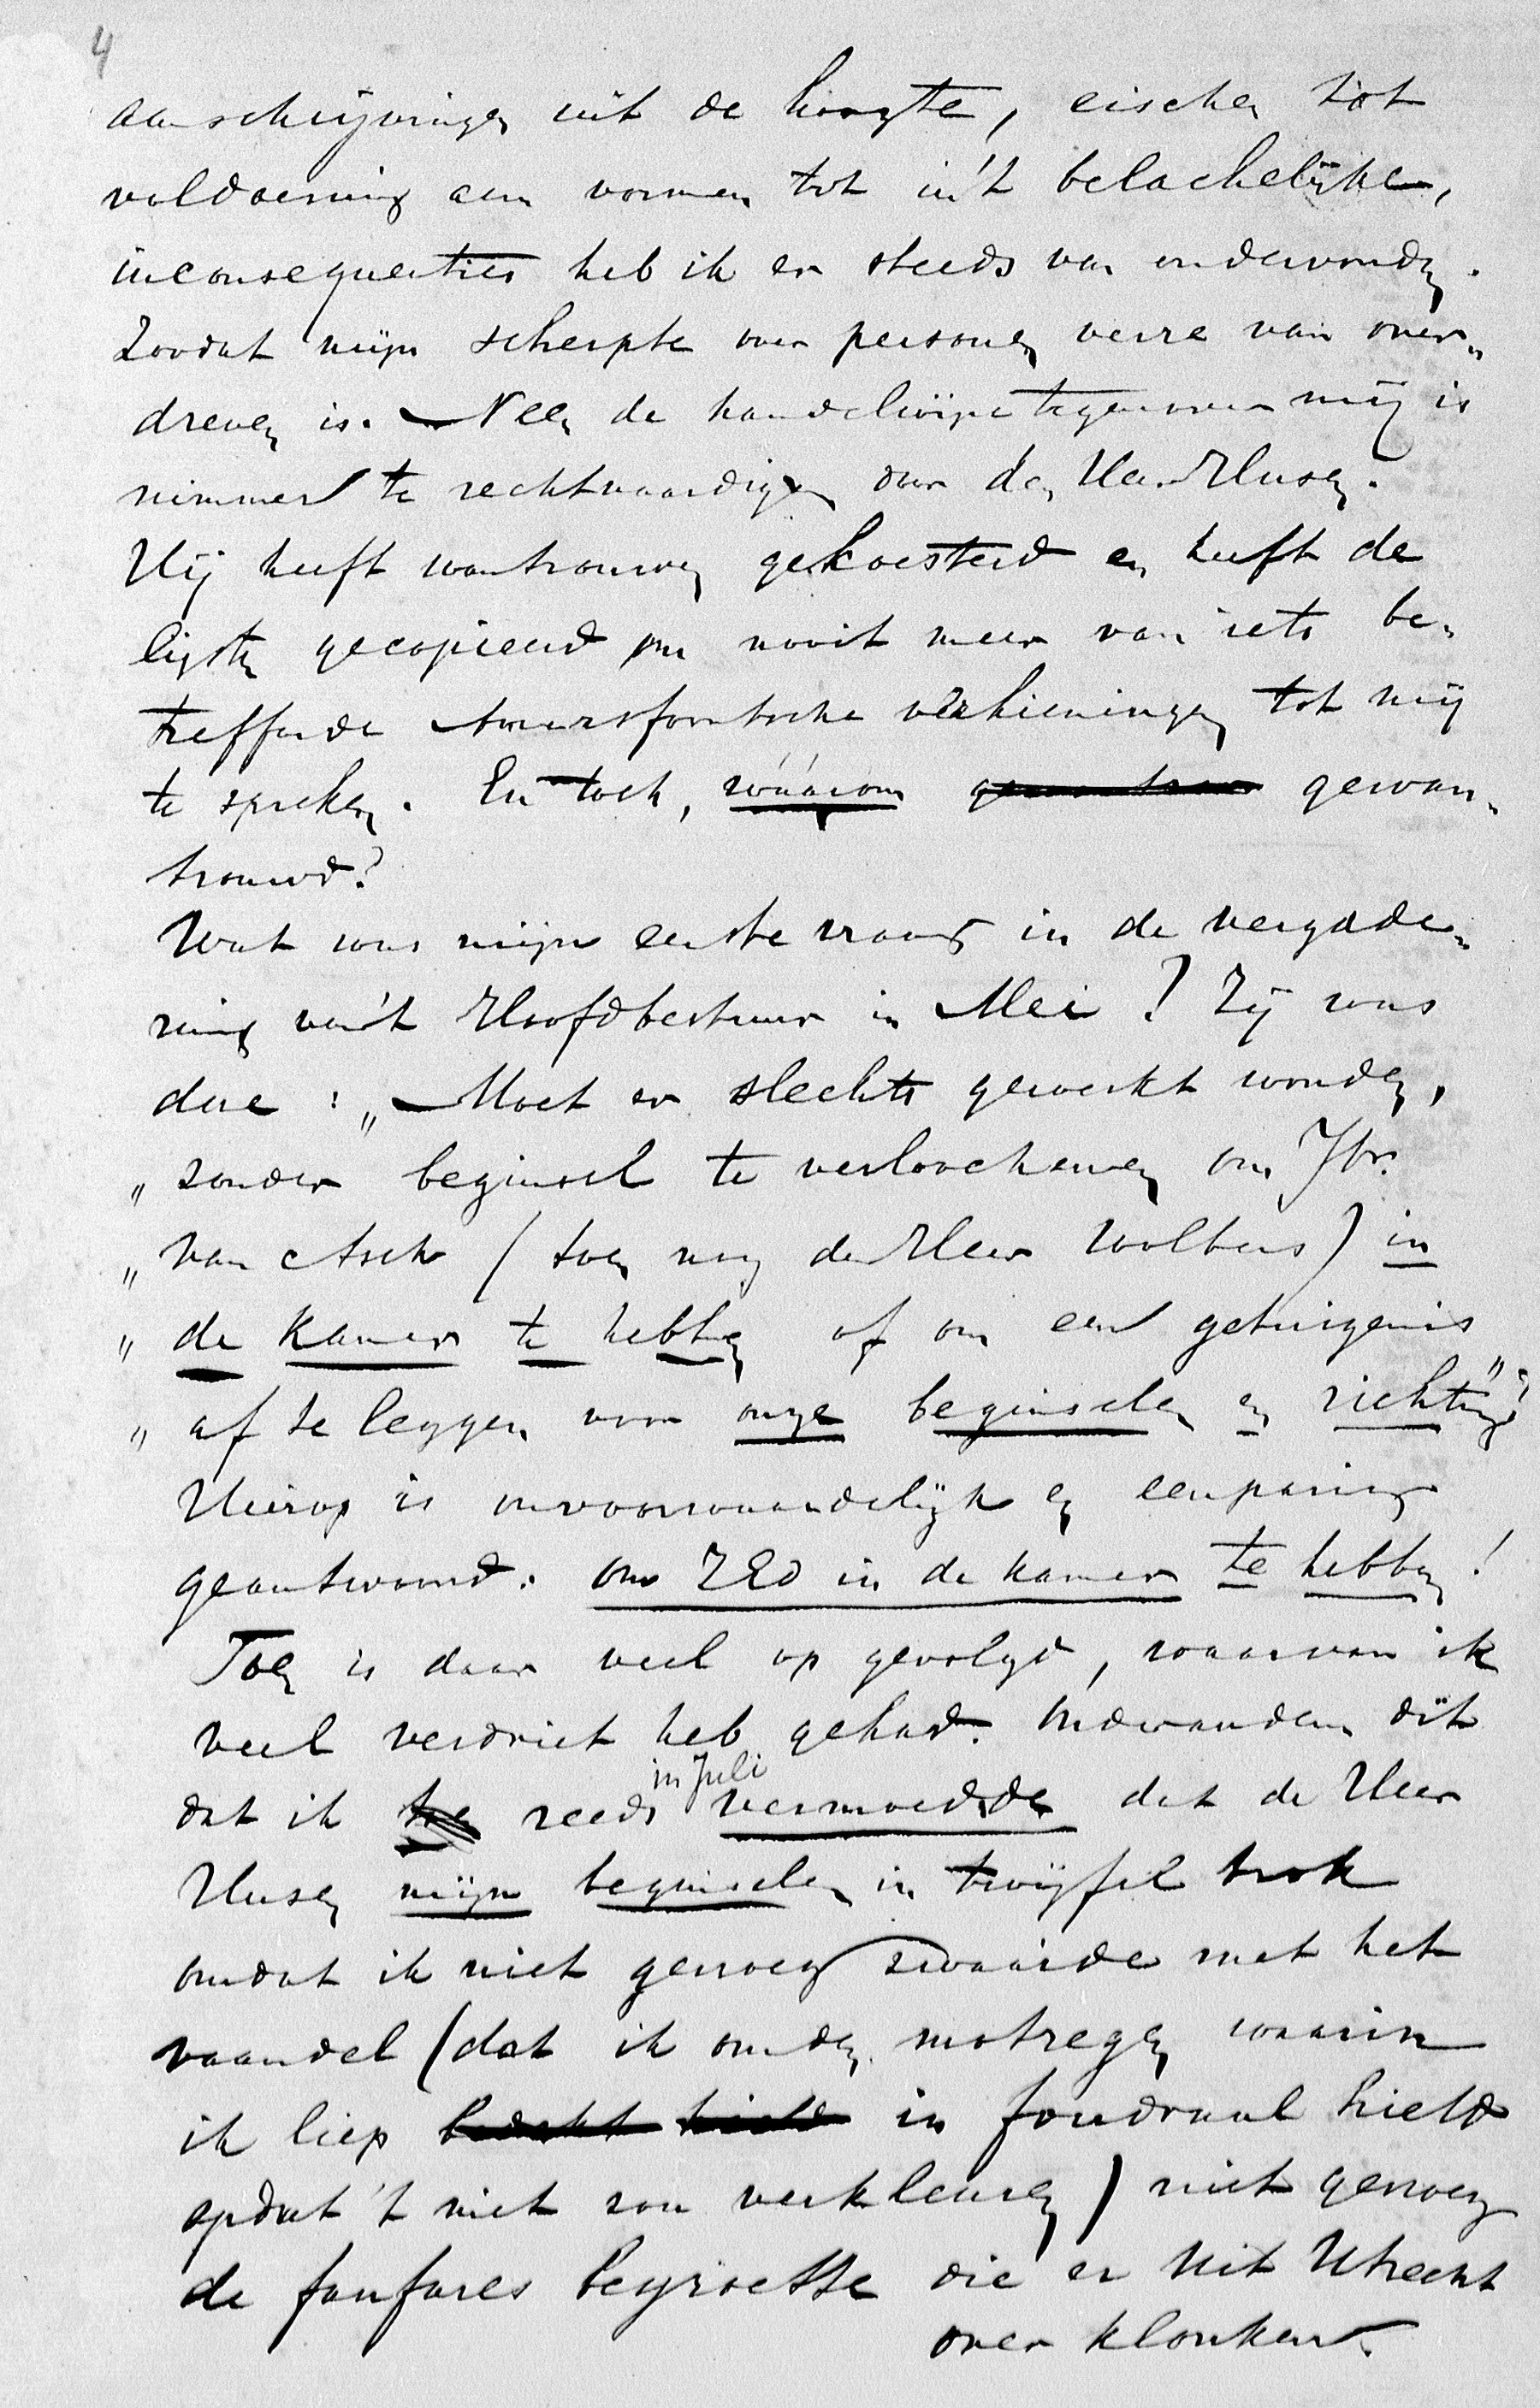 4
aanschrijvingen uit de hoogte, eischen tot
voldoening aan vormen tot in 't belachelijke,
inconsequenties heb ik er steeds van ondervonden.
Zoodat mijn scherpte over personen verre van over„
dreven is. Neen de handelwijze tegenover mij is
nimmer te rechtvaardigen door den Heer Husen.
Hij heeft wantrouwen gekoesterd en heeft de
lijsten gecopieerd om nooit meer van iets be„
treffende Amersfoortsche verkiezingen tot mij
te spreken. En toch, wáárom gewan„
trouwd?
Wat was mijne eerste vraag in de vergade„
ring van 't Hoofdbestuur in Mei? Zij was
deze: „Moet er slechts gewerkt worden,
„zonder beginsel te verloochenen om Jhr.
„van Asch (toen nog de Heer Wolbers) in
„de kamer te hebben of om een getuigenis
„af te leggen voor onze beginselen en richting"?
Hierop is onvoorwaardelijk en eenparig
geantwoord: om ZEd in de kamer te hebben!
Toen is daar veel op gevolgd, waarvan ik
veel verdriet heb gehad. Onderanderen dit
in Juli
dat ik reeds vermoedde dat de Heer
Husen mijne beginselen in twijfel trok
omdat ik niet genoeg zwaaide met het
vaandel (dat ik om den motregen waarin
ik liep bedekt hield in foudraal hield
opdat 't niet zou verkleuren) niet genoeg
de fanfares begroette die er uit Utrecht
over klonken.